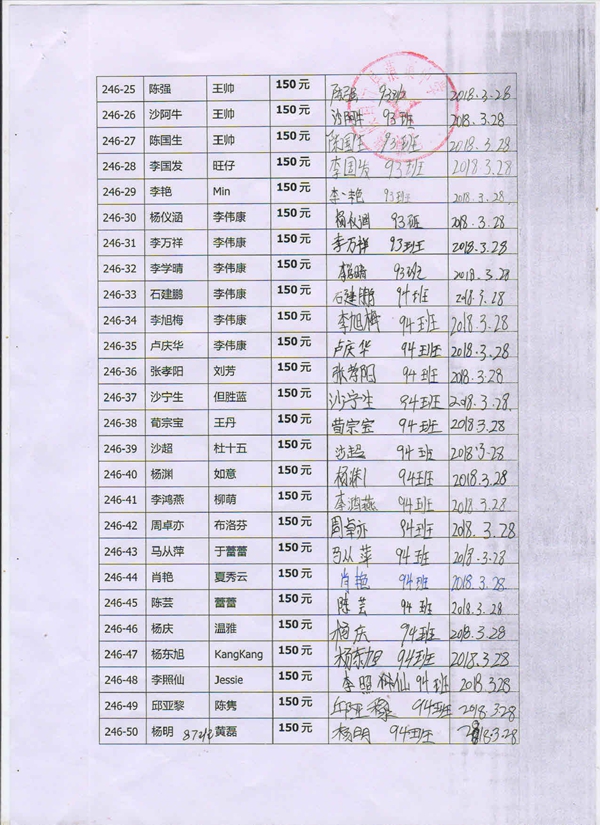 246-25 陈强 王帅 150元 陈强 93班 2018.3.28
246-26 沙阿牛 王帅 150元 沙阿牛 93班 2018.3.28
246-27 陈国生 王帅 150元 陈国生 93班 2018.3.28
246-28 李国发 旺仔 150元 李国发 93班 2018.3.28
246-29 李艳 Min 150元 李艳 93班 2018.3.28
246-30 杨仪涵 李伟康 150元 杨仪涵 93班 2018.3.28
246-31 李万祥 李伟康 150元 李万祥 93班 2018.3.28
246-32 李学晴 李伟康 150元 93班 2018.3.28
246-33 石建鹏 李伟康 150元 石建鹏 94班 2018.3.28
246-34 李旭梅 李伟康 150元 李旭梅 94班 2018.3.28
246-35 卢庆华 李伟康 150元 卢庆华 94班 2018.3.28
246-36 张孝阳 刘芳 150元 张孝阳 94班 2018.3.28
246-37 沙宁生 但胜蓝 150元 沙宁生 94班 2018.3.28.
246-38 荀宗宝 王丹 150元 荀宗宝 94班 2018.3.28
246-39 沙超 杜十五 150元 沙超 94班 2018.3-28
246-40 杨渊 如意 150元 杨渊 94班 2018.3.28
246-41 李鸿燕 柳萌 150元 李鸿燕 94班 2018.3.28
246-42 周卓亦 布洛芬 150元 周卓亦 94班 2018.3.28
246-43 马从萍 于蕾蕾 150元 马从萍 94班 2018.3.28
246-44 肖艳 夏秀云 150元 肖艳 94班 2018.3.28
246-45 陈芸 蕾蕾 150元 陈芸 94班 2018.3.28
246-46 杨庆 温雅 150元 杨庆 94班 2018.3.28
246-47 杨东旭 KangKang 150元 杨东旭 94班 2018.3.28
246-48 李照仙 Jessie 150元 李照仙 94班 2018.3.28
246-49 邱亚黎 陈隽 150元 邱亚黎 94班 2018.3.28
246-50 杨明 黄磊 150元 杨明 94班 2018.3.28